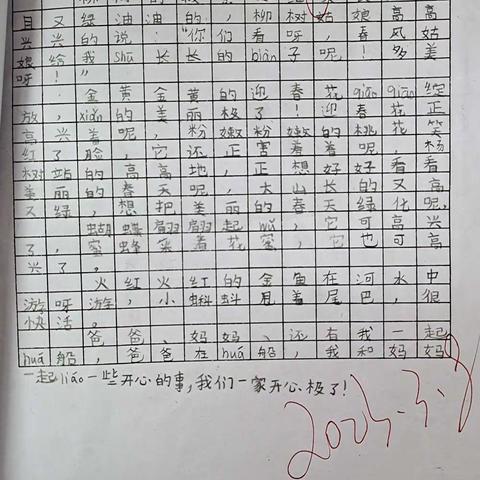 目又绿油油的,柳树姑娘高高
兴兴的说:"你们看呀,春风姑
娘给我shū长长的biàn子呢!多美
呀!"
金黄金黄的迎春花qiān qiān绽
放,xiǎn的美丽极了!迎春花正
高兴着呢,粉嫩粉嫩的桃花笑
红了脸,它还正害羞着呢,杨
树站的高高地,正想好好看看
美丽的春天呢,大山长的又高
又绿,想把美丽的春天绿化呢,
蝴蝶翩翩起wǔ,它可高兴
了,蜜蜂采着花蜜,它也可高
兴了。
火红火红的金鱼在河水中
游呀游,小蝌蚪甩着尾巴,很
快活。
爸爸、妈妈、还有我一起
huá船,爸爸在huá船,我和妈妈
一起liáo一些开心的事,我们一家开心极了!